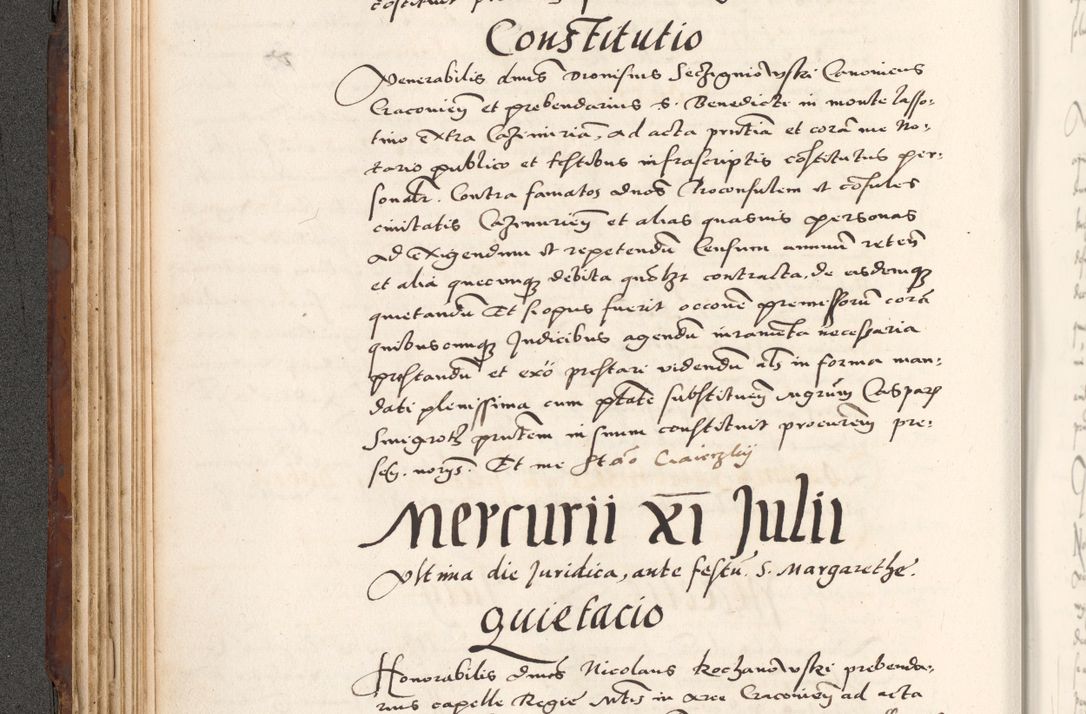 Constitutio
Venerabilis dnus Dionisius Secҙigniowski Canonicus
Cracovien et prebendarius S. Benedicti in monte lasso-
tino extra Casimiriam, ad acta prntia et corā me No-
tario publico et testibus infrascriptis cōstitutus per-
sonalr. Contra famatos dnos Proconsulem et cōsules
civitatis Casimirien et alias quasvis personas
ad exigendum et repetendū Censum annuū reten
et alia quecunqz debita quolzt contracta, de eisdemqz
quietandū Et si opus fuerit occōne premissorū corā
quibuscunqz Judicibus agendū iuramēta necessaria
prestandū et exō prestari videndū als in forma man-
dati plenissima cum ptāte substituen Mgrum Caspar
Smigroth prntem in suum constituit procurem pre-
sen. Et me Stāo
Mercurii XI Julii
Ultima die Juridica, ante festū S. Margarethe.
Quietacio
Honorabilis dnus Nicolaus Kochanowski prebenda-
rius capelle Regie in arce Cracovien ad acta